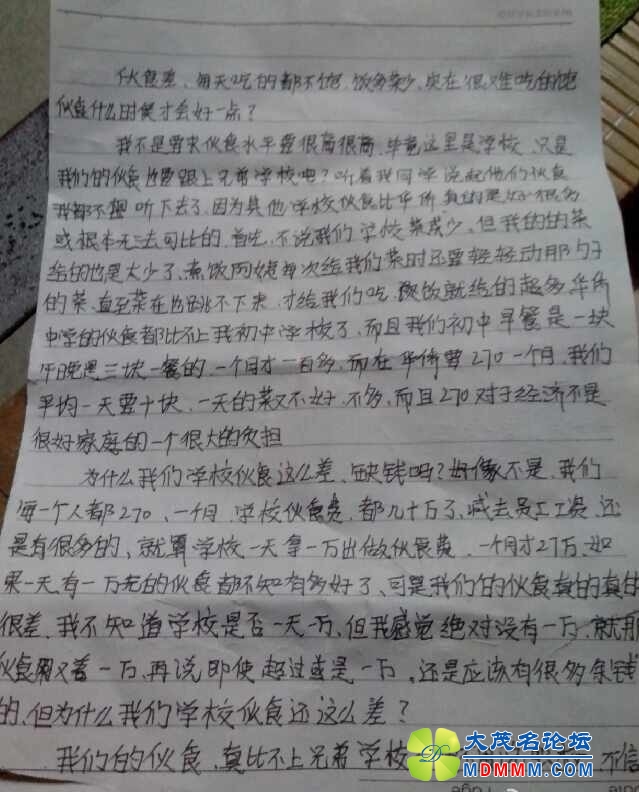 伙食差、每天吃的都不饱、饭多菜少、实在很难吃的饱
伙食什么时候才会好一点？
我不是要求伙食水平要很高很高、毕竟这里是学校、只是
我们的伙食也要跟上兄弟学校吧？听着我同学说起他们伙食
我都不想听下去了、因为其他学校伙食比华侨真的是好很多
或根本无法可比的、首先、不说我们学校菜式少、但我的的菜
给的也是太少了、煮饭阿姨每次给我们菜时还要轻轻动那勺子
的菜、直至菜在也跳不下来、才给我们吃、饭就给的超多、华侨
中学的伙食都比不上我初中学校了、而且我们初中早餐是一块
午晚是三块一餐的、一个月才一百多、而在华侨要270一个月、我们
平均一天要十块、一天的菜又不好、不多、而且270对于经济不是
很好家庭的一个很大的负担
为什么我们学校伙食这么差、缺钱吗？好像不是、我们
每一个人都270、一个月、学校伙食费、都几十万了、减去员工工资、还
是有很多的、就算学校一天拿一万出做伙食费、一个月才27万、如
果一天有一万元的伙食都不知有多好了、可是我们的伙食真的真的
很差、我不知道学校是否一天一万、但我感觉绝对没有一万、就那
伙食 又着一万、再说即使超过或是一万、还是应该有很多余钱
的、但为什么我们学校伙食还这么差？
我们的伙食、真比不上兄弟学校 不信
大茂名论坛
MDMMM.COM